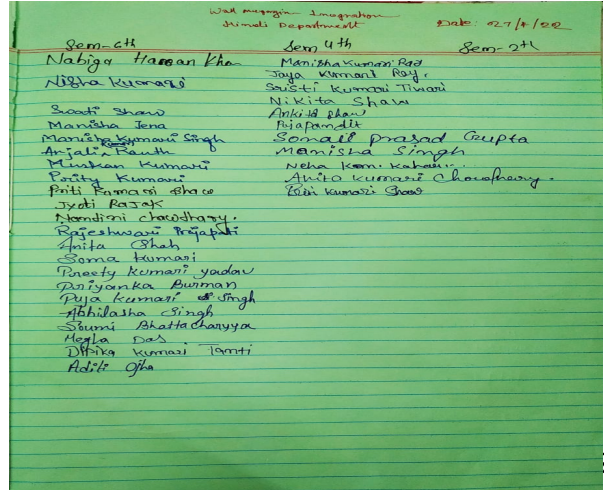 Wall magazin Inaugration
Hindi Department
Date: 27/4/22
Sem-6th
Nabiga Hassan Khan
Nisha Kumari
Swati Shaw
Manisha Jena
Manisha Kumari Singh
Anjali Routh
Muskan Kumari
Pority Kumari
Priti Kumari Shaw
Jyoti RAJAK
Nandini chawdhary.
Rajeshwari Prajapati
Anita Shah
Soma Kumari
Preety Kumari yadav
Priyanka Burman
Puja Kumari Singh
Abhilasha Singh
Soumi Bhattacharyya
Megla Das
Dipika Kumari Tamti
Aditi Ojha
Sem 4th
Manisha Kumari Rao
Jaya Kumari Ray.
Sristi Kumari Tiwari
Nikita Shaw
Ankita Shaw
Puja Pandit
Sonali prasad Gupta
Manisha Singh
Neha Kum.
Anita Kumari Chowdhary.
Kumari Shaw
Sem-2th